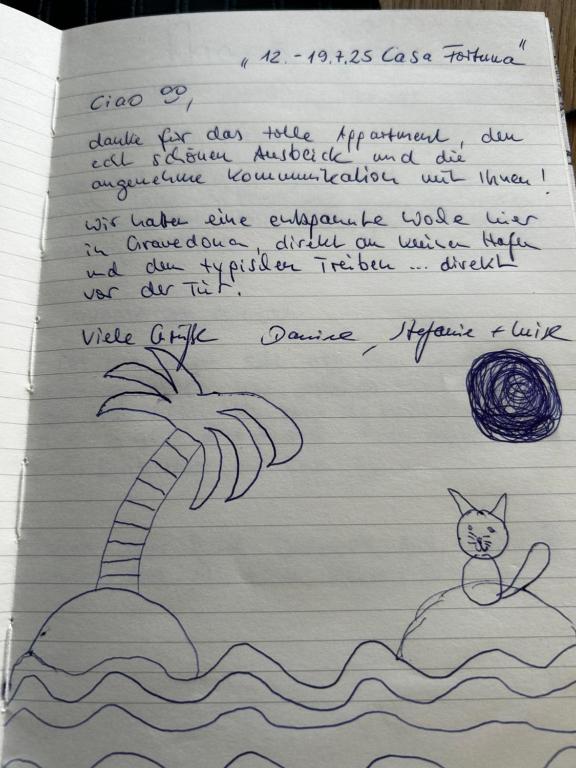 „ 12. - 19.7.25 Casa Fortuna "
Ciao
danke für das tolle Appartment, den
echt schönen Ausblick und die
angenehme Kommunikation mit Ihnen!
Wir haben eine entspannte Woche hier
in Gravedona, direkt am kleinen Hafen
und den typischen Treiben ... direkt
vor der Tür.
Viele Grüße , Stefanie + Luise